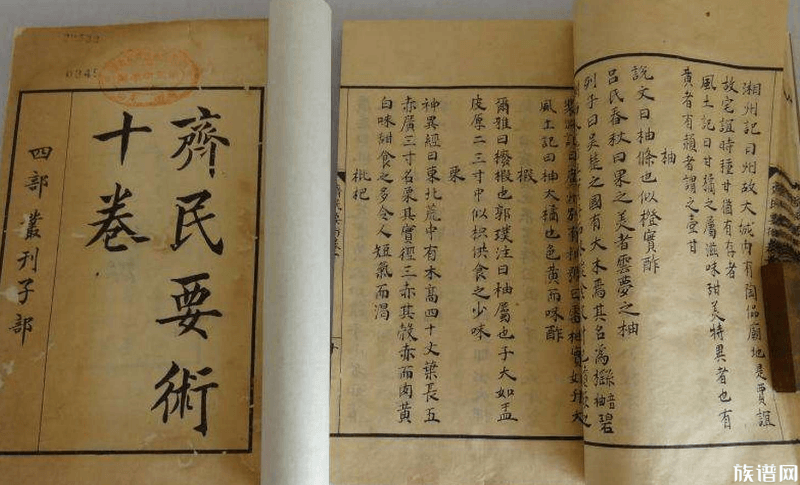 齊民要術
十卷
四部叢刊子部
湘州記曰州故大城內有陶侃廟地是賈誼
故宅誼時種甘猶有存者
風土記曰甘橘之屬滋味甜美特異者也有
黃者有赬者謂之壺甘
柚
說文曰柚條也似橙實酢
呂氏春秋曰果之美者雲夢之柚
列子曰吳楚之國有大木焉其名爲櫾音柚碧
風土記曰柚大橘也色黃而味酢
椵
爾雅曰櫠椵也郭璞注曰柚屬也子大如盂
皮厚二三寸中似枳供食之少味
栗
神異經曰東北荒中有木高四十丈葉長五
赤廣三寸名栗其實徑三赤其殼赤而肉黃
白味甜食之多令人短氣而渴
枇杷
族谱网